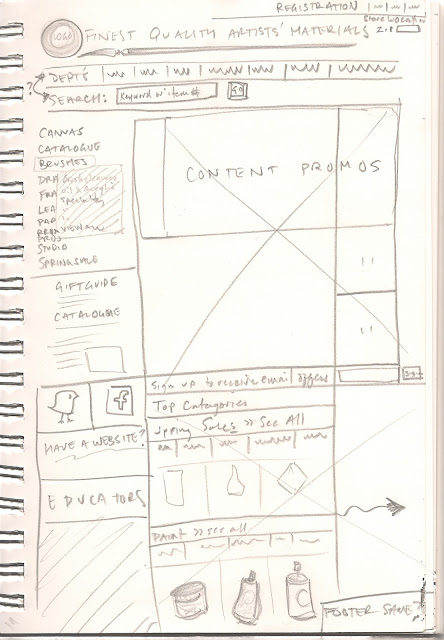 REGISTRATION
Store Location
LOGO
FINEST QUALITY ARTISTS' MATERIALS
ZIP
? DEPT'S
SEARCH: Keyword or item # GO
CANVAS
CATALOGUE
BRUSHES
DRA
FRA
LEA
PAP
Specialty
VIEW ALL
STUDIO
SPRING SALE
CONTENT PROMOS
GIFT GUIDE
CATALOGUE
Sign up to receive email offers GO
Top Categories
Spring Sales >> See All
f
HAVE A WEBSITE?
EDUCATORS
PAINT >> see all
FOOTER SAME?